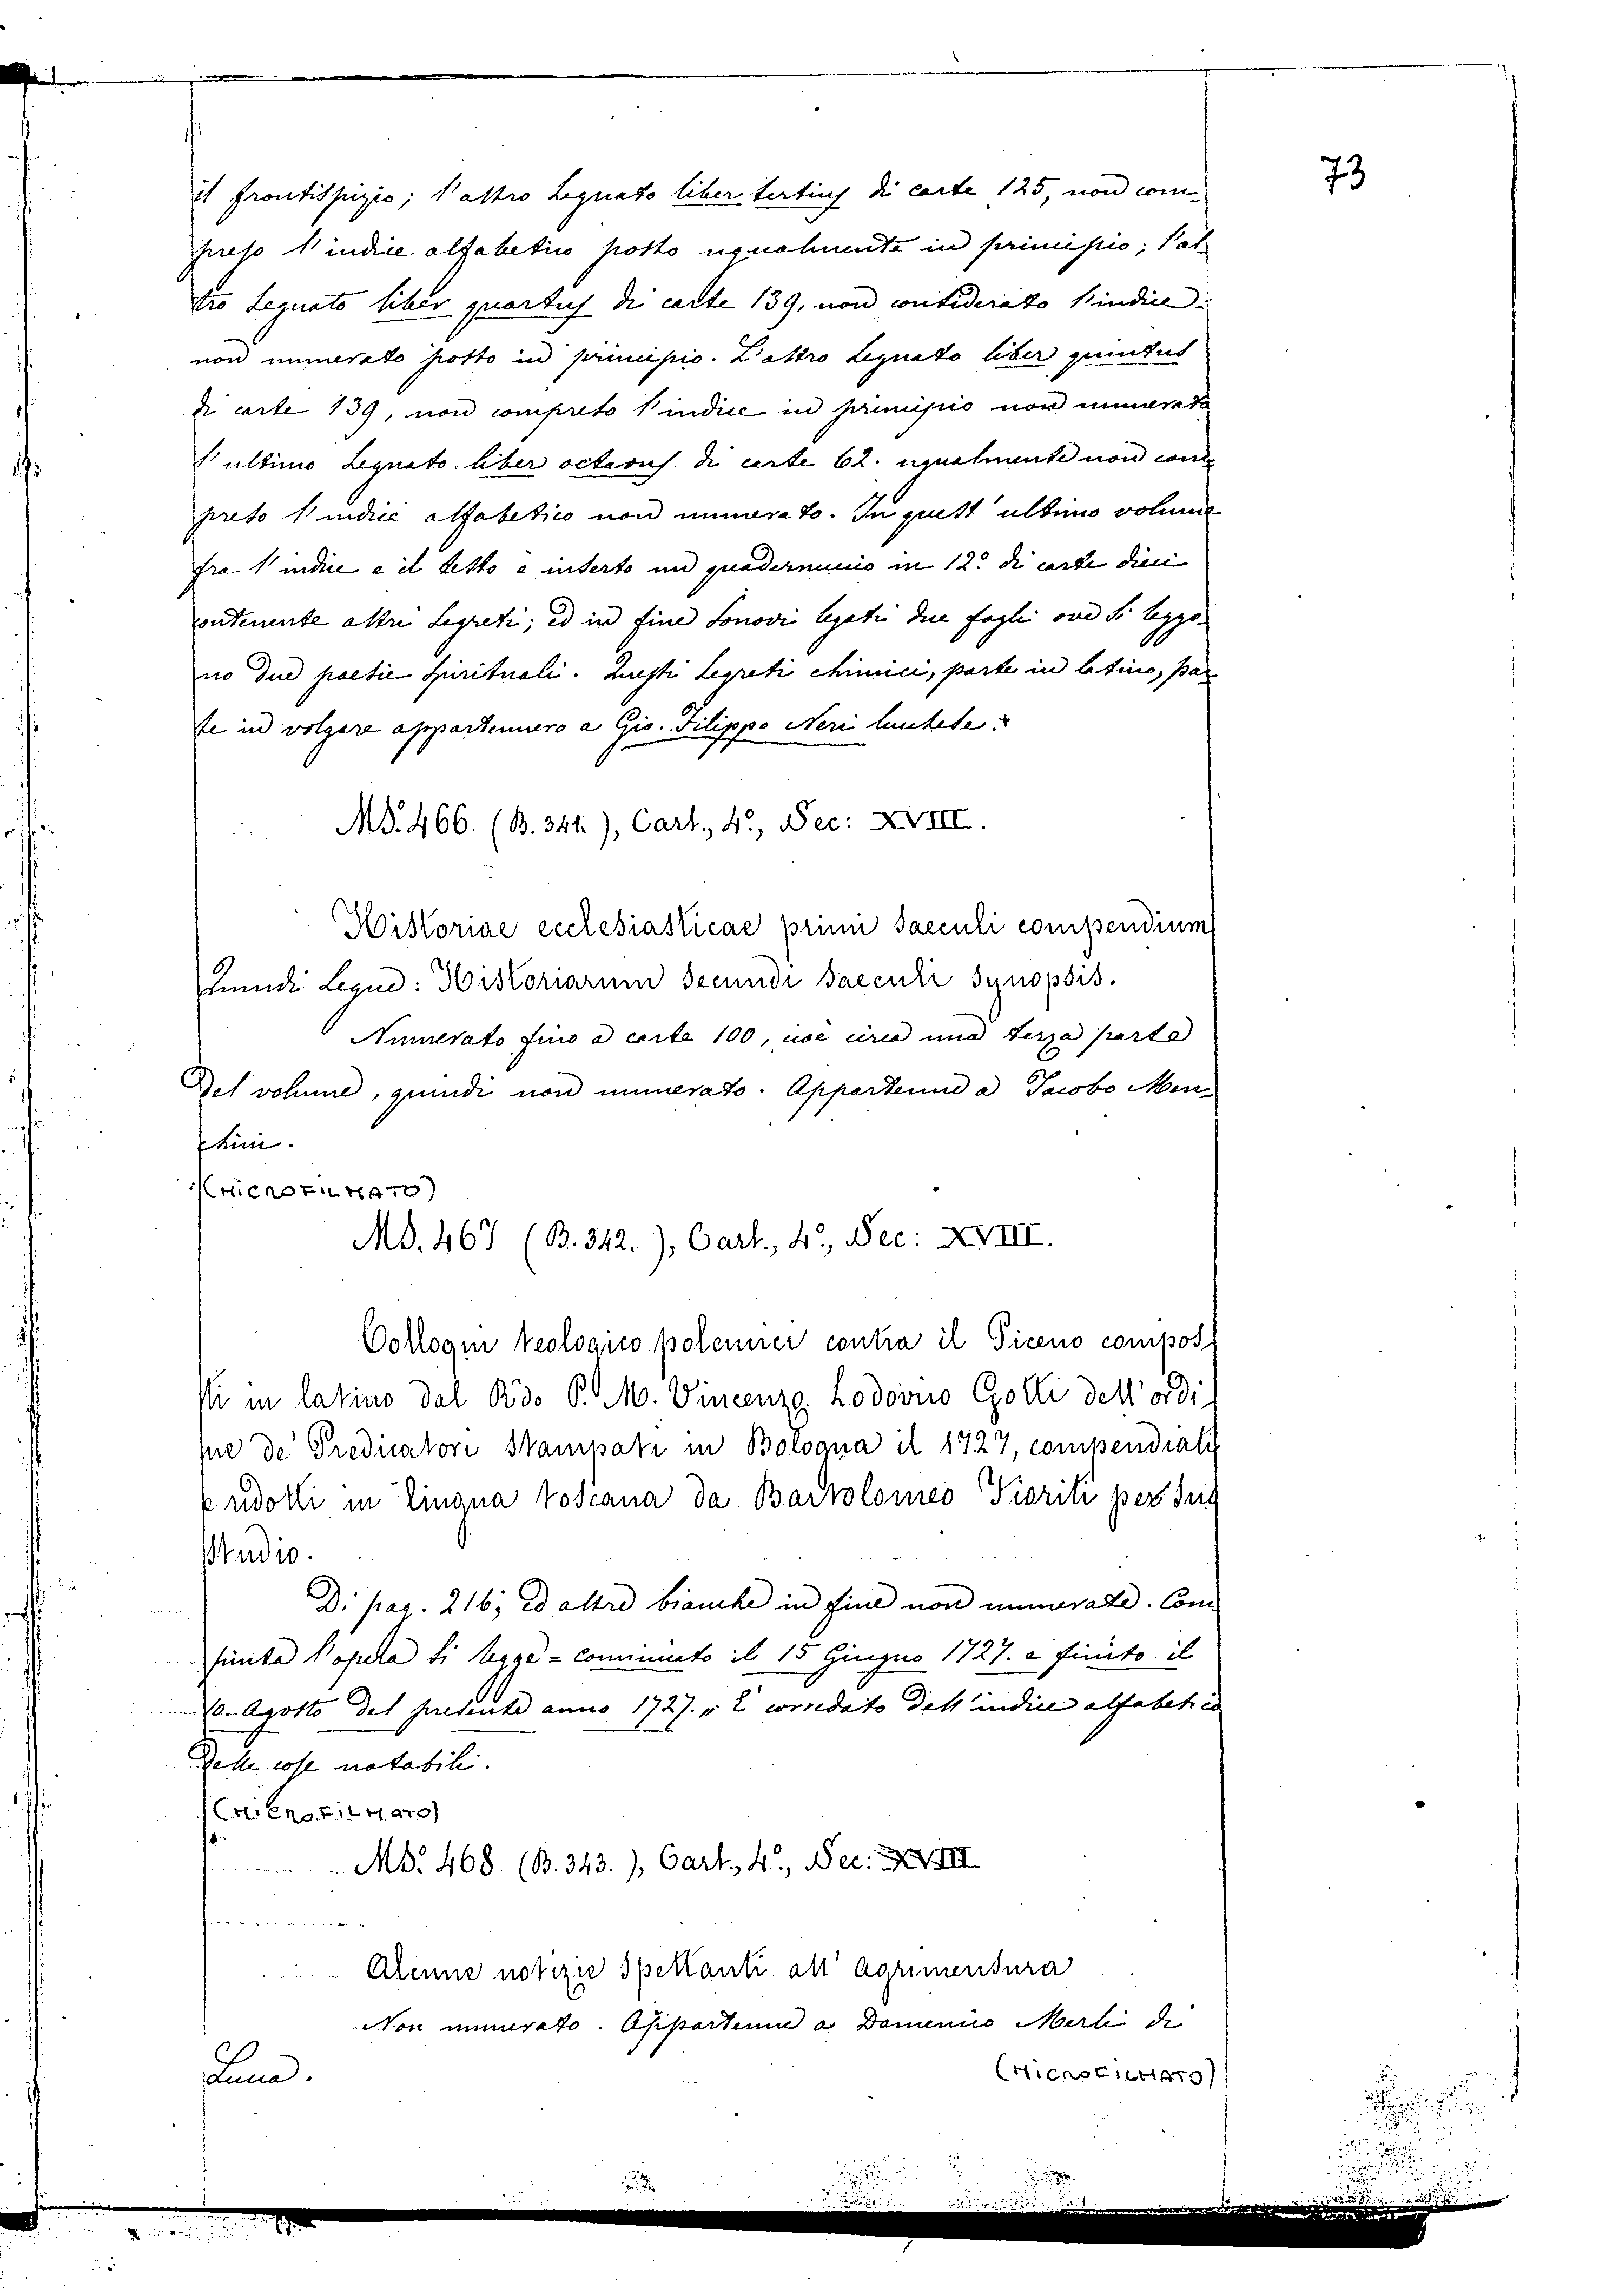 73
il frontispizio; l'altro segnato liber tertius di carte 125, non com-
preso l'indice alfabetico posto ugualmente in principio; l'al-
tro segnato liber quartus di carte 139, non considerato l'indice
non numerato posto in principio. L'altro segnato liber quintus
di carte 139, non compreso l'indice in principio non numerato
l'ultimo segnato liber octavus di carte 62. ugualmente non com-
preso l'indice alfabetico non numerato. In quest'ultimo volume
fra l'indice e il testo è inserto un quadernuccio in 12º di carte dieci
contenente altri segreti; ed in fine sonovi legati due fogli ove si leggo-
no due poesie spirituali. Questi segreti chimici, parte in latino, par-
te in volgare appartennero a Gio. Filippo Neri
MS. 466. (B. 341.), Cart., 4º, Sec: XVIII.
Historiae ecclesiasticae primi saeculi compendium
Quindi segue: Historiarum secundi saeculi synopsis.
Numerato fino a carte 100, cioè circa una terza parte
del volume, quindi non numerato. Appartenne a Jacobo Men-
chini.
(MICROFILMATO)
MS. 467. (B. 342.), Cart., 4º, Sec: XVIII.
Colloqui teologico polemici contra il Piceno compos-
ti in latino dal Rdo P. M. Vincenzo Lodovico Gotti dell'ordi-
ne de' Predicatori stampati in Bologna il 1727, compendiati
e ridotti in lingua toscana da Bartolomeo Fioriti per suo
studio.
Di pag. 216; ed altre bianche in fine non numerate. Com-
finita l'opera si legge = cominciato il 15 Giugno 1727. e finito il
10. Agosto del presente anno 1727. „ È corredato dell'indice alfabetico
delle cose notabili.
(MICROFILMATO)
MS. 468. (B. 343.), Cart., 4º, Sec: XVIII
Alcune notizie spettanti all'agrimensura
Non numerato. Appartenne a Domenico Merli di
Luca.
(MICROFILMATO)